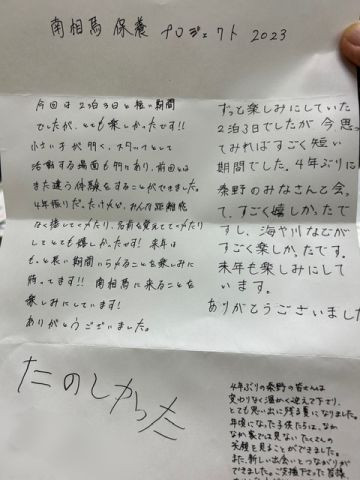 南相馬 保養 プロジェクト 2023
今回は2泊3日と短い期間
でしたが、とても楽しかったです!!
小さい子が多く、スタッフとして
活動する場面も多々あり、前回とは
また違う体験をすることができました。
4年振りだったけど、みんな距離感
なく接してくれたり、名前を覚えてくれたり
してとても嬉しかったです! 来年は
もっと長い期間いられることを楽しみに
待ってます!! 南相馬に来ることを
楽しみにしています!
ありがとうございました。
ずっと楽しみにしていた
2泊3日でしたが今思っ
てみればすごく短い
期間でした。4年ぶりに
秦野のみなさんと会っ
て、すごく嬉しかったで
すし、海や川なむが
すごく楽しかったです。
来年も楽しみにして
います。
ありがとうございました
たのしかった
4年ぶりの秦野の皆さんは
変わりなく温かく迎えて下さり、
とても思い出に残る夏になりました。
年頃になった子供たちは、なか
なか家では見ない たくさんの
笑顔を見ることができました。
また、新しい出会いとつながりが
できました。ご支援下さった皆様、